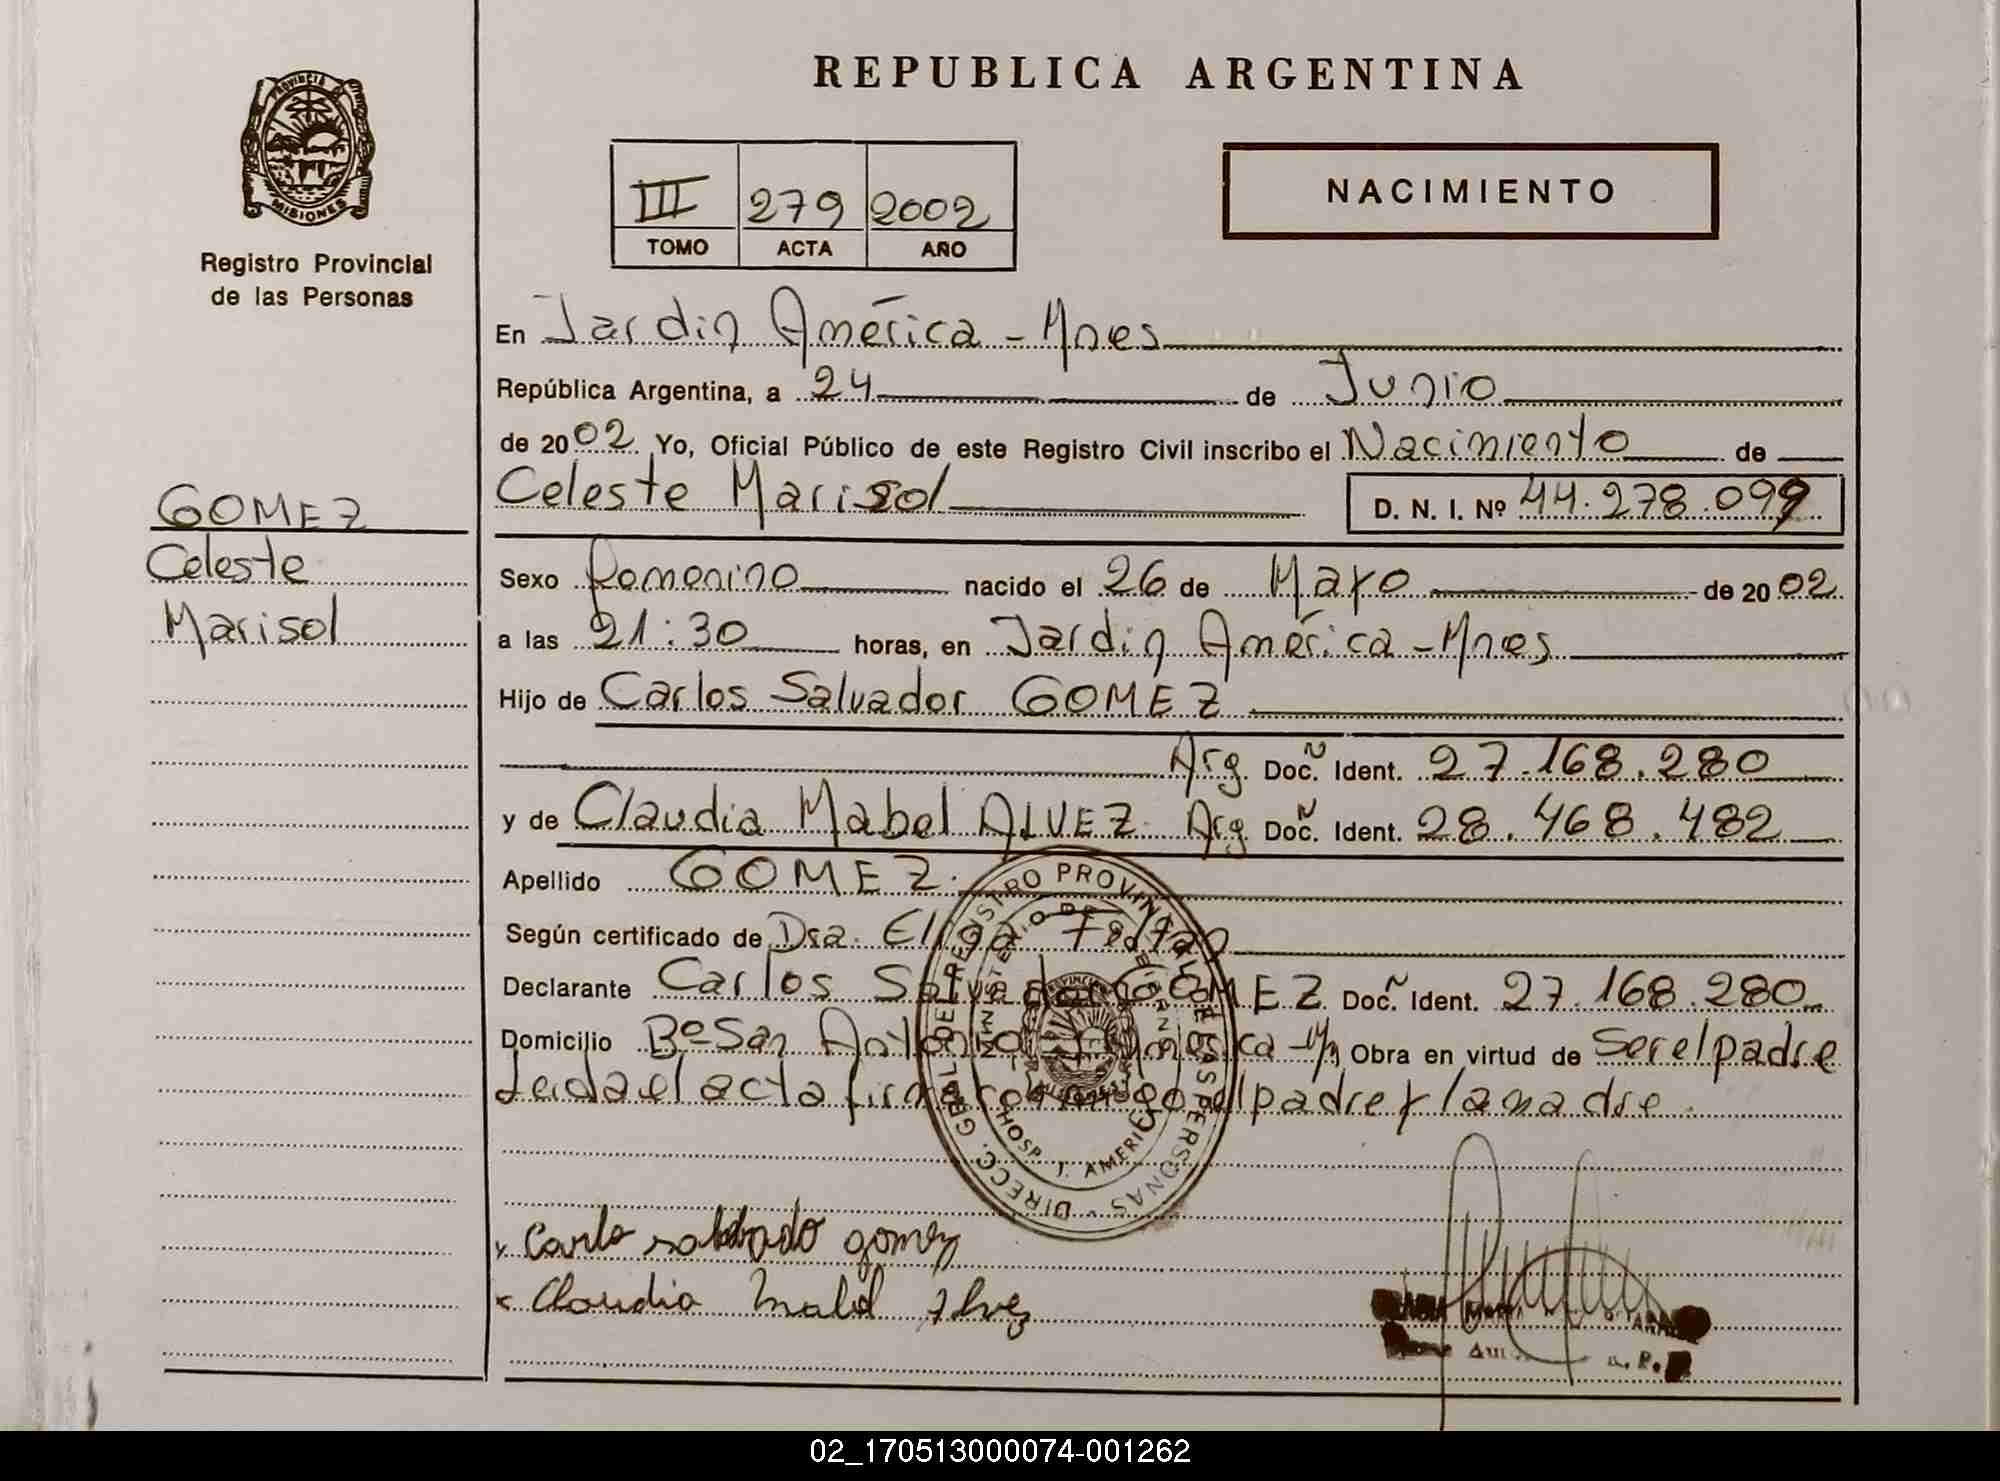 REPUBLICA ARGENTINA
PROVINCIA DE
MISIONES
Registro Provincial
de las Personas
III 279 2002
TOMO ACTA AÑO
NACIMIENTO
En Jardin América - Mnes
República Argentina, a 24 de Junio
de 2002 Yo, Oficial Público de este Registro Civil inscribo el Nacimiento de
Celeste Marisol D. N. I. Nº 44.278.099
GOMEZ
Celeste
Marisol
Sexo Femenino nacido el 26 de Mayo de 2002
a las 21:30 horas, en Jardin América - Mnes
Hijo de Carlos Salvador GOMEZ
Arg. Doc. Ident. 27.168.280
y de Claudia Mabel ALVEZ Arg Doc. Ident. 28.468.482
Apellido GOMEZ.
Según certificado de Dra.
Declarante Carlos Salvador GOMEZ Doc. Ident. 27.168.280
Domicilio Bº San Antonio Obra en virtud de Ser el padre
Leida el acta firman el padre y la madre.
DIRECC. GRAL DE REGISTRO PROVINCIAL DE LAS PERSONAS
MINISTERIO DE
HOSP. J. AMERICA
gomez
Claudia
02_170513000074-001262